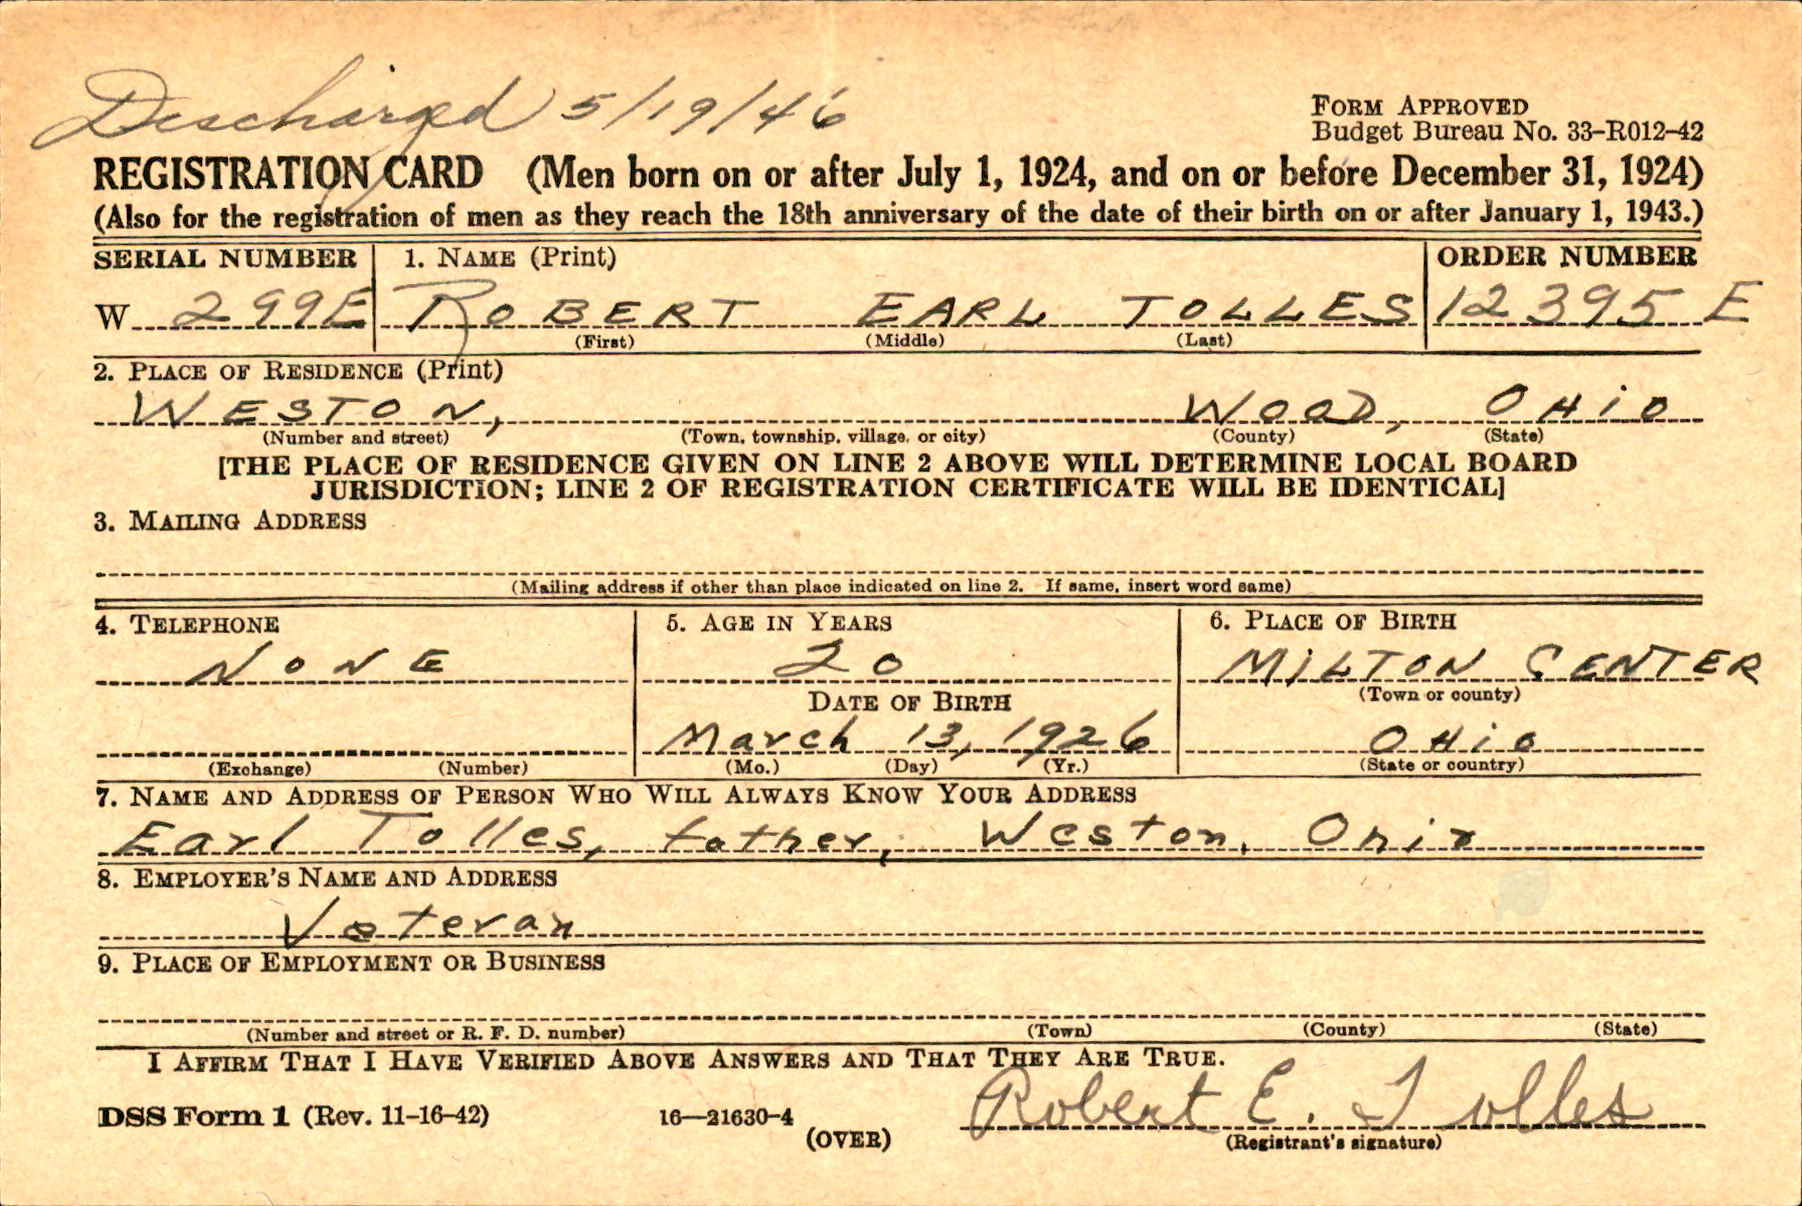 Discharged 5/19/46
FORM APPROVED
Budget Bureau No. 33-R012-42
REGISTRATION CARD (Men born on or after July 1, 1924, and on or before December 31, 1924)
(Also for the registration of men as they reach the 18th anniversary of the date of their birth on or after January 1, 1943.)
SERIAL NUMBER 1. NAME (Print) ORDER NUMBER
W 299E ROBERT EARL TOLLES 12395 E
(First) (Middle) (Last)
2. PLACE OF RESIDENCE (Print)
WESTON, WOOD, OHIO
(Number and street) (Town, township, village, or city) (County) (State)
[THE PLACE OF RESIDENCE GIVEN ON LINE 2 ABOVE WILL DETERMINE LOCAL BOARD
JURISDICTION; LINE 2 OF REGISTRATION CERTIFICATE WILL BE IDENTICAL]
3. MAILING ADDRESS
(Mailing address if other than place indicated on line 2. If same, insert word same)
4. TELEPHONE 5. AGE IN YEARS 6. PLACE OF BIRTH
NONE 20 MILTON CENTER
DATE OF BIRTH (Town or county)
March 13, 1926 OHIO
(Exchange) (Number) (Mo.) (Day) (Yr.) (State or country)
7. NAME AND ADDRESS OF PERSON WHO WILL ALWAYS KNOW YOUR ADDRESS
Earl Tolles, father, Weston, Ohio
8. EMPLOYER'S NAME AND ADDRESS
Veteran
9. PLACE OF EMPLOYMENT OR BUSINESS
(Number and street or R. F. D. number) (Town) (County) (State)
I AFFIRM THAT I HAVE VERIFIED ABOVE ANSWERS AND THAT THEY ARE TRUE.
DSS Form 1 (Rev. 11-16-42) 16—21630-4 Robert E. Tolles
(OVER) (Registrant's signature)